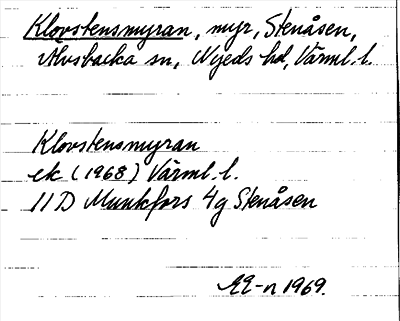 Klovstensmyran, myr, Stenåsen,
Älvsbacka sn, Nyeds hd, Värml. l.
Klovstensmyran
ek (1968) Värml. l.
11D Munkfors 4g Stenåsen
EE-n 1969.